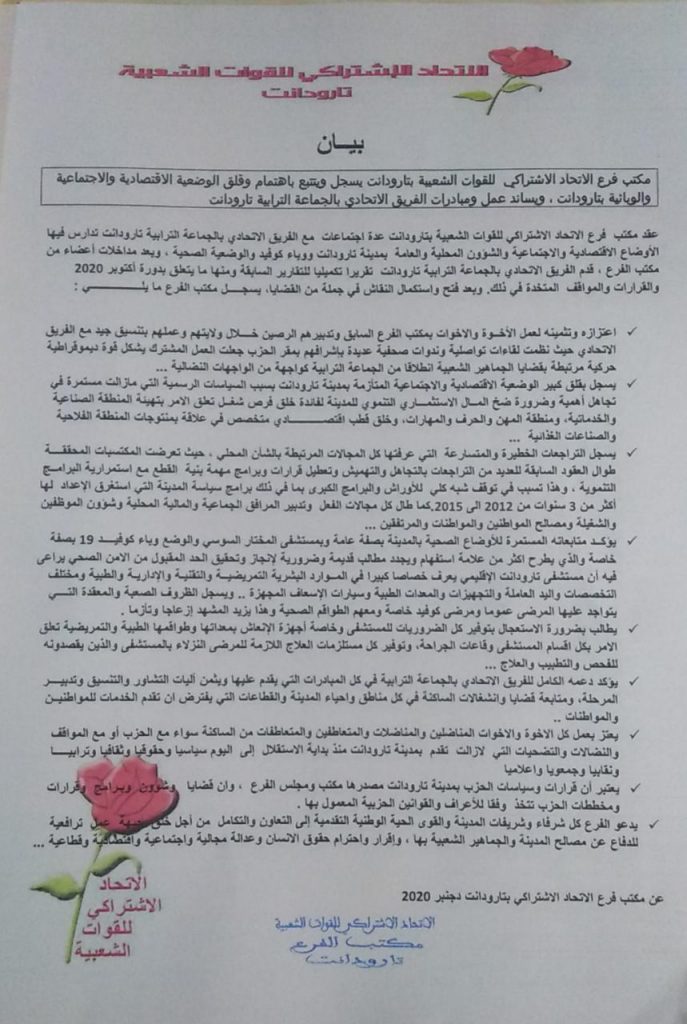 الاتحاد الإشتراكي للقوات الشعبية
تارودانت
بيـــان
مكتب فرع الاتحاد الاشتراكي للقوات الشعبية بتارودانت يسجل ويتتبع باهتمام وقلق الوضعية الاقتصادية والاجتماعية
والوبائية بتارودانت ، ويساند عمل ومبادرات الفريق الاتحادي بالجماعة الترابية تارودانت
عقد مكتب فرع الاتحاد الاشتراكي للقوات الشعبية بتارودانت عدة اجتماعات مع الفريق الاتحادي بالجماعة الترابية تارودانت تدارس فيها
الأوضاع الاقتصادية والاجتماعية والشؤون المحلية والعامة بمدينة تارودانت ووباء كوفيد والوضعية الصحية ، وبعد مداخلات أعضاء من
مكتب الفرع ، قدم الفريق الاتحادي بالجماعة الترابية تارودانت تقريرا تكميليا للتقارير السابقة ومنها ما يتعلق بدورة أكتوبر 2020
والقرارات والمواقف المتخدة في ذلك. وبعد فتح واستكمال النقاش في جملة من القضايا، يسجــل مكتب الفرع ما يلـــــي :
✓ اعتزازه وتثمينه لعمل الأخـوة والاخوات بمكتب الفرع السابق وتدبيرهم الرصين خــلال ولايتهم وعملهم بتنسيق جيد مع الفريق
الاتحادي حيث نظمت لقاءات تواصلية وندوات صحفية عديدة بإشرافهم بمقر الحزب جعلت العمل المشترك يشكل قوة ديموقراطية
حركية مرتبطة بقضايا الجماهير الشعبية انطلاقا من الجماعة الترابية كواجهة من الواجهات النضالية ...
✓ يسجل بقلق كبير الوضعية الاقتصادية والاجتماعية المتأزمة بمدينة تارودانت بسبب السياسات الرسمية التي مازالت مستمرة في
تجاهل أهمية وضرورة ضخ المـال الاستثمـاري التنموي للمدينة لفائدة خلق فرص شغـل تعلق الامر بتهيئة المنطقة الصناعية
والخدماتية، ومنطقة المهن والحرف والمهارات، وخلق قطب اقتصـــادي متخصص في علاقة بمنتوجات المنطقة الفلاحية
والصناعات الغذائية ...
✓ يسجل التراجعات الخطيرة والمتسارعة التي عرفتها كل المجالات المرتبطة بالشأن المحلي ، حيث تعرضت المكتسبات المحققــة
طوال العقود السابقة للعديد من التراجعات بالتجاهل والتهميش وتعطيل قرارات وبرامج مهمة بنية القطع مع استمرارية البرامـج
التنموية ، وهذا تسبب في توقف شبه كلي للأوراش والبرامج الكبرى بما في ذلك برامج سياسة المدينة التي استغرق الإعداد لها
أكثر من 3 سنوات من 2012 الى 2015.كما طال كل مجالات الفعل وتدبير المرافق الجماعية والمالية المحلية وشؤون الموظفين
والشغيلة ومصالح المواطنين والمواطنات والمرتفقين ...
✓ يؤكـد متابعاته المستمرة للأوضاع الصحية بالمدينة بصفة عامة وبمستشفى المختار السوسي والوضع وباء كوفيــد 19 بصفة
خاصة والذي يطرح اكثر من علامة استفهام ويجدد مطالب قديمة وضرورية لإنجاز وتحقيق الحد المقبول من الامن الصحي يراعى
فيه أن مستشفى تارودانت الإقليمي يعرف خصاصا كبيرا في المـوارد البشرية التمريضيـة والتقنية والإدارية والطبية ومختلف
التخصصات واليد العاملة والتجهيزات والمعدات الطبية وسيارات الإسعاف المجهزة .. ويسجل الظروف الصعبة والمعقدة التــي
يتواجد عليها المرضى عموما ومرضى كوفيد خاصة ومعهم الطواقم الصحية وهذا يزيد المشهد إزعاجا وتأزما .
✓ يطالب بضرورة الاستعجال بتوفير كل الضروريات للمستشفى وخاصة أجهزة الإنعاش بمعداتها وطواقمها الطبية والتمريضية تعلق
الامر بكل اقسام المستشفى وقاعات الجراحة، وتوفير كل مستلزمات العلاج اللازمة للمرضى النزلاء بالمستشفى والذين يقصدونه
للفحص والتطبيب والعلاج ...
✓ يؤكد دعمه الكامل للفريق الاتحادي بالجماعة الترابية في كل المبادرات التي يقدم عليها ويثمن آليات التشاور والتنسيق وتدبيــر
المرحلة، ومتابعة قضايا وانشغالات الساكنة في كل مناطق واحياء المدينة والقطاعات التي يفترض ان تقدم الخدمات للمواطنيـن
والمواطنات ..
✓ يعتز بعمل كل الاخوة والاخوات المناضلين والمناضلات والمتعاطفين والمتعاطفات من الساكنة سواء مع الحزب أو مع المواقف
والنضالات والتضحيات التي لازالت تقدم بمدينة تارودانت منذ بداية الاستقلال إلى اليوم سياسيا وحقوقيا وثقافيا وترابيــا
ونقابيا وجمعويا واعلاميا
✓ يعتبر أن قرارات وسياسات الحزب بمدينة تارودانت مصدرها مكتب ومجلس الفرع ، وان قضايا وشؤون وبرامج وقرارات
ومخططات الحزب تتخذ وفقا للأعراف والقوانين الحزبية المعمول بها .
✓ يدعو الفرع كل شرفاء وشريفات المدينة والقوى الحية الوطنية التقدمية إلى التعاون والتكامل من أجل خلق جبهة عمل ترافعية
للدفاع عن مصالح المدينة والجماهير الشعبية بها ، وإقرار واحترام حقوق الانسان وعدالة مجالية واجتماعية واقتصادية وقطاعية ...
عن مكتب فرع الاتحاد الاشتراكي بتارودانت دجنبر 2020
الاتحاد الاشتراكي للقوات الشعبية
مكتب الفرع
تارودانت
الاتحاد
الاشتراكي
للقوات
الشعبية